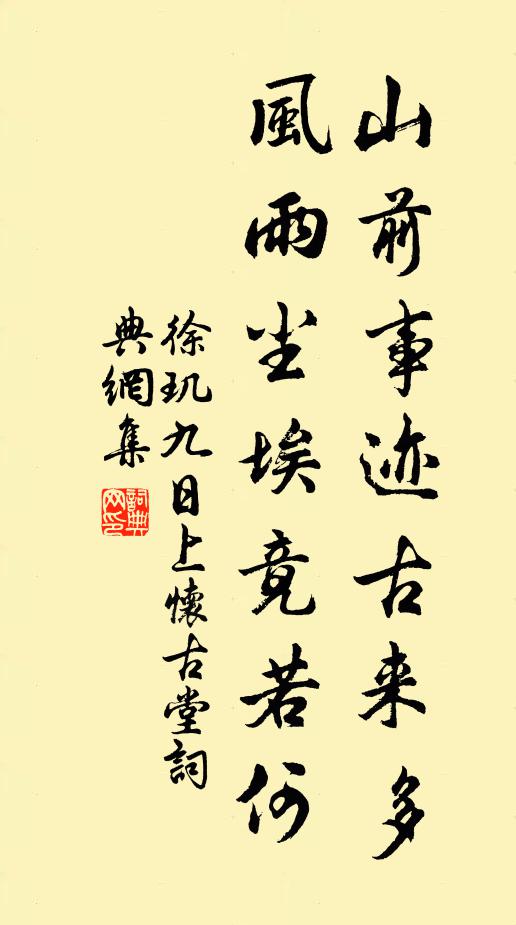 山前事迹古来多
風雨尘埃竟若何
徐玑九日上懷古堂詞
典網集
詞典
网印